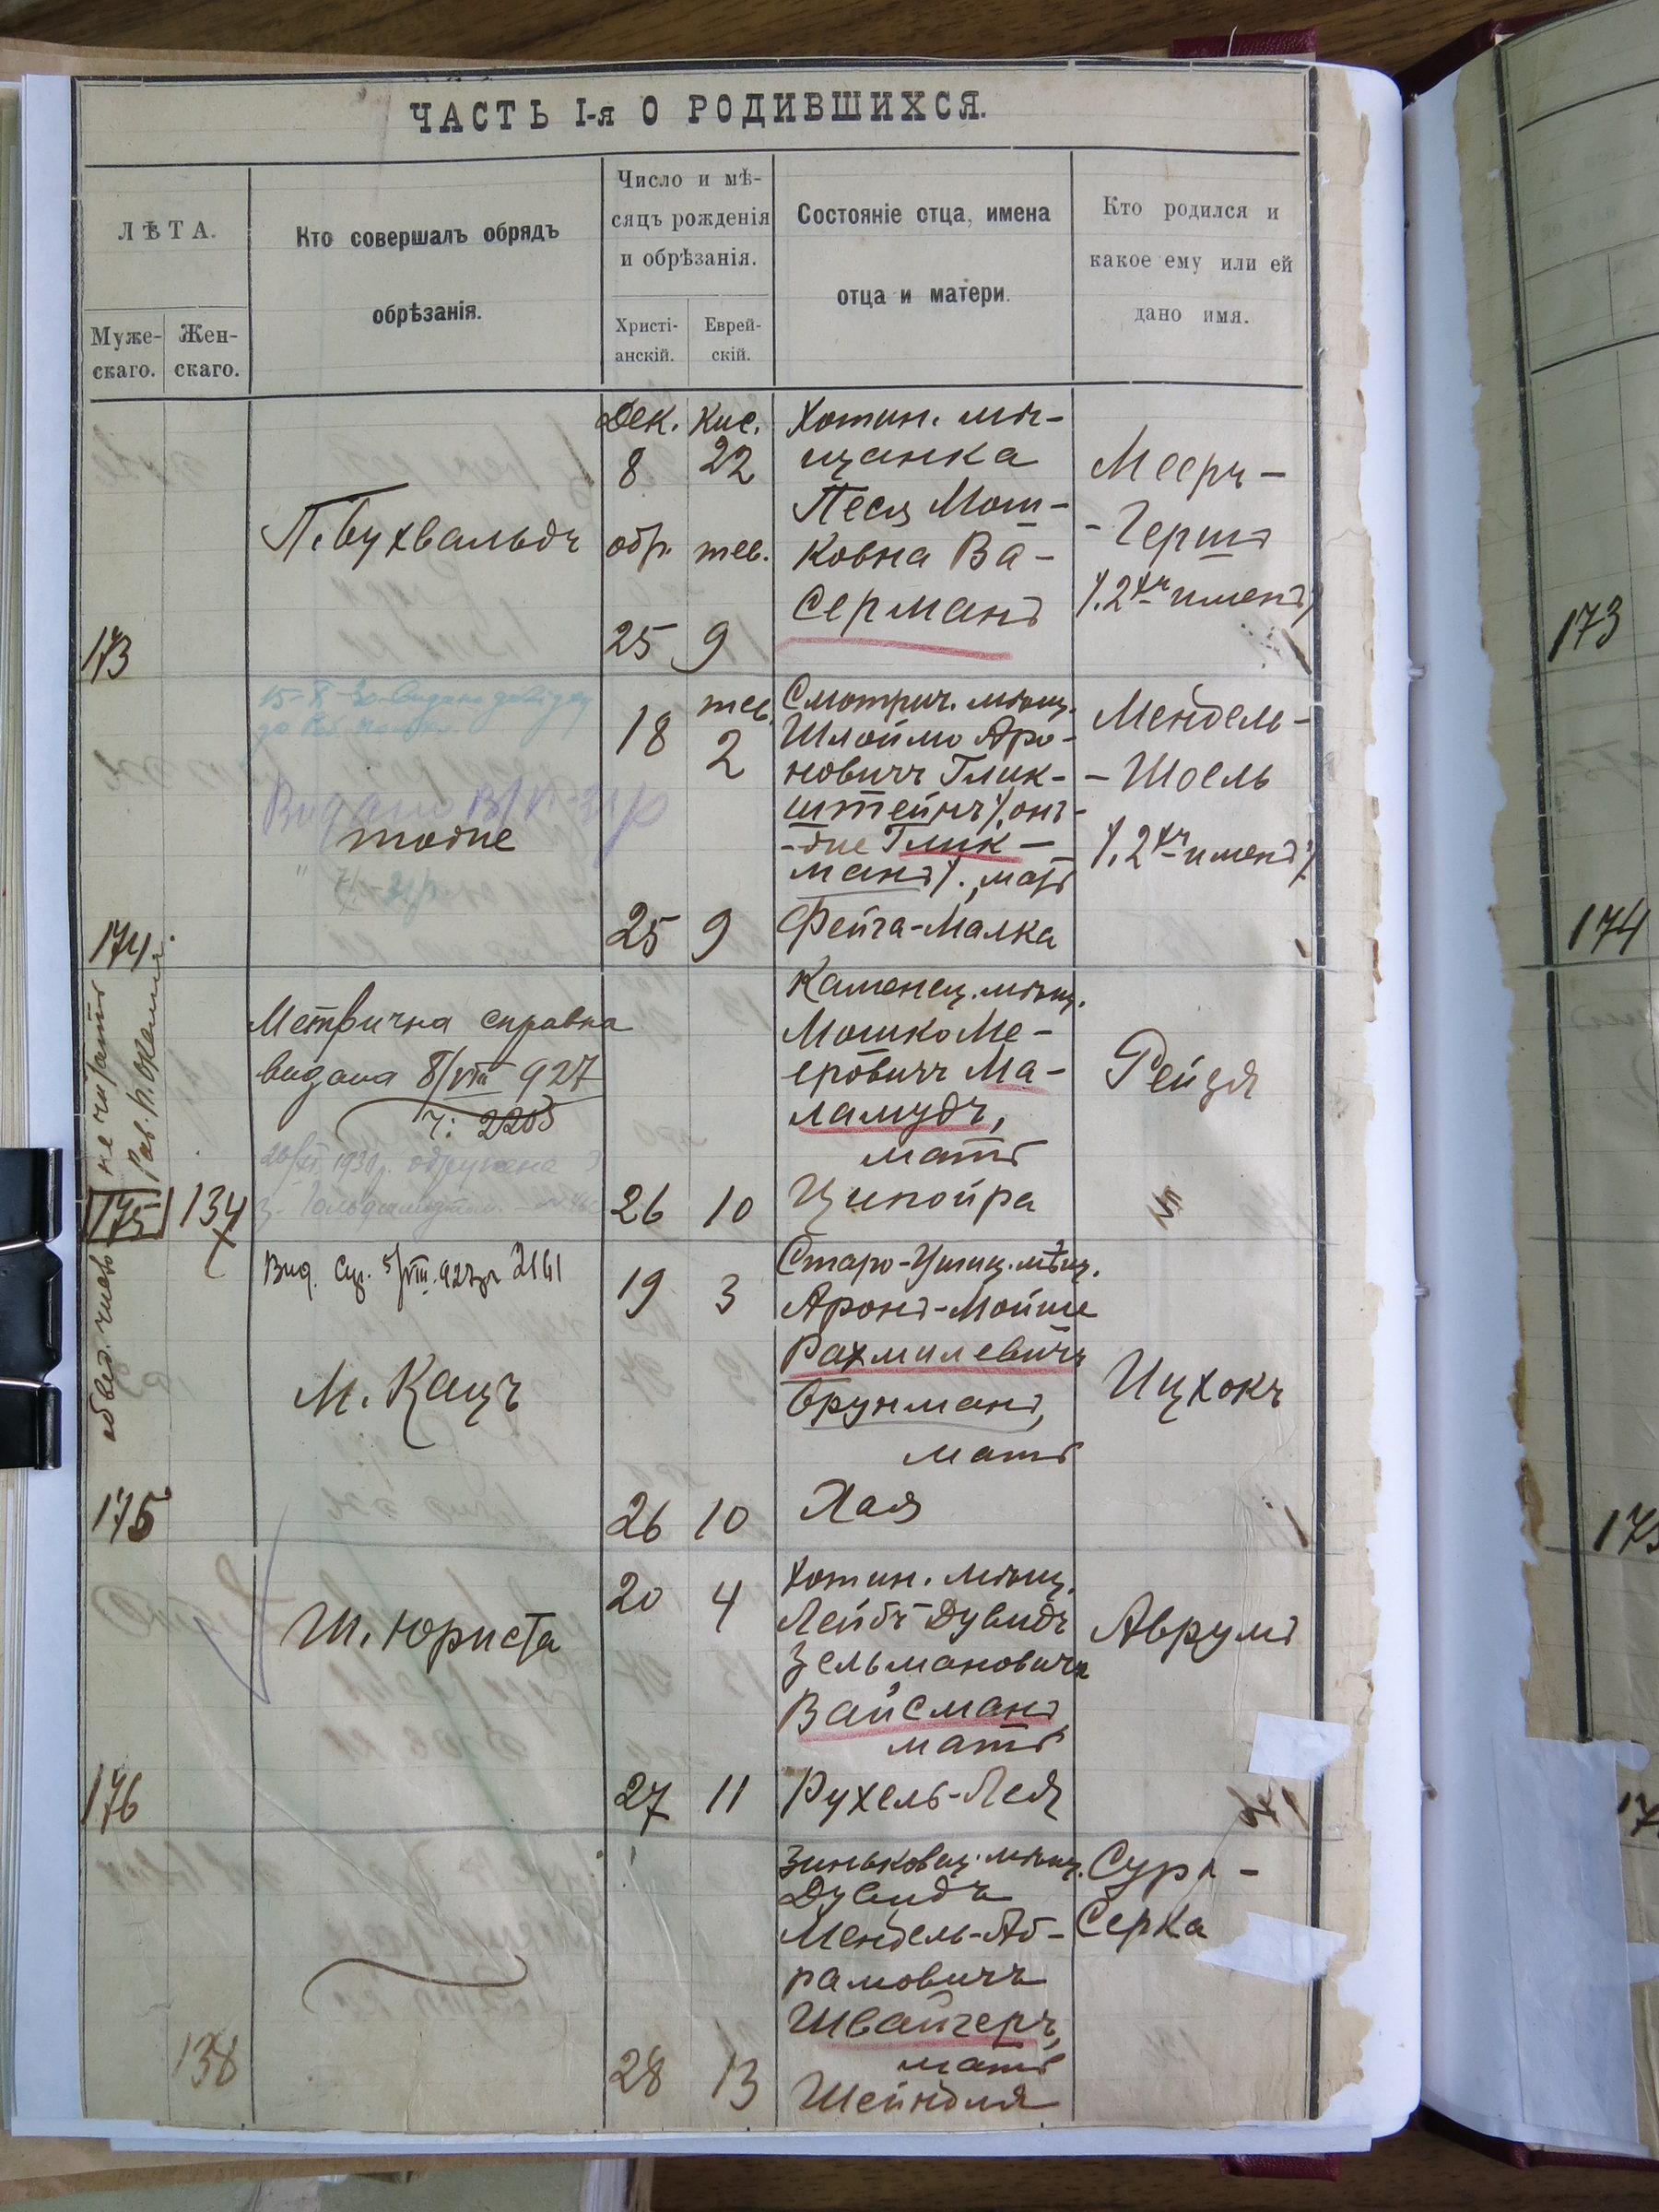 ЧАСТЬ I-я О РОДИВШИХСЯ.
ЛѢТА.
Муже-
скаго.
Жен-
скаго.
Кто совершалъ обрядъ
обрѣзанія.
Число и мѣ-
сяцъ рожденія
и обрѣзанія.
Христі-
анскій.
Еврей-
скій.
Состояніе отца, имена
отца и матери.
Кто родился и
какое ему или ей
дано имя.
173
П. Бухвальдъ
Дек. Кис.
8 22
обр. тев.
25 9
Хотин. мѣ-
щанка
Песя Мош-
ковна Ва-
серманъ
Мееръ-
-Гершъ
/.2хъ именъ/
173
174.
тоже
18 тев.
2
25 9
Смотрич. мѣщ.
Шлойме Аро-
новичъ Глик-
штейнъ /.онъ-
-же Глик-
манъ/., мать
Фейга-Малка
Мендель-
-Шоель
/.2хъ именъ/
174
175 134
Метрична справка
видана 8/VIII 927
ч: 2203
26 10
Каменец. мѣщ.
Мошко Ме-
еровичъ Ма-
ламудъ,
мать
Ципойра
Рейзя
не читать
175
Вид. 5/VIII.927р 2161
М. Кацъ
19 3
26 10
Старо-Ушиц. мѣщ.
Аронъ-Мойше
Рахмилевичъ
Брунманъ,
мать
Хая
Ицхокъ
176
Ш. Юриста
20 4
27 11
Хотин. мѣщ.
Лейбъ Дувидъ
Зельмановичъ
Вайсманъ
мать
Рухель-Лея
Аврумъ
138
28 13
Зиньковец. мѣщ.
Дувидъ
Мендель-Аб-
рамовичъ
Швайгеръ,
мать
Шейндля
Сура-
Серка